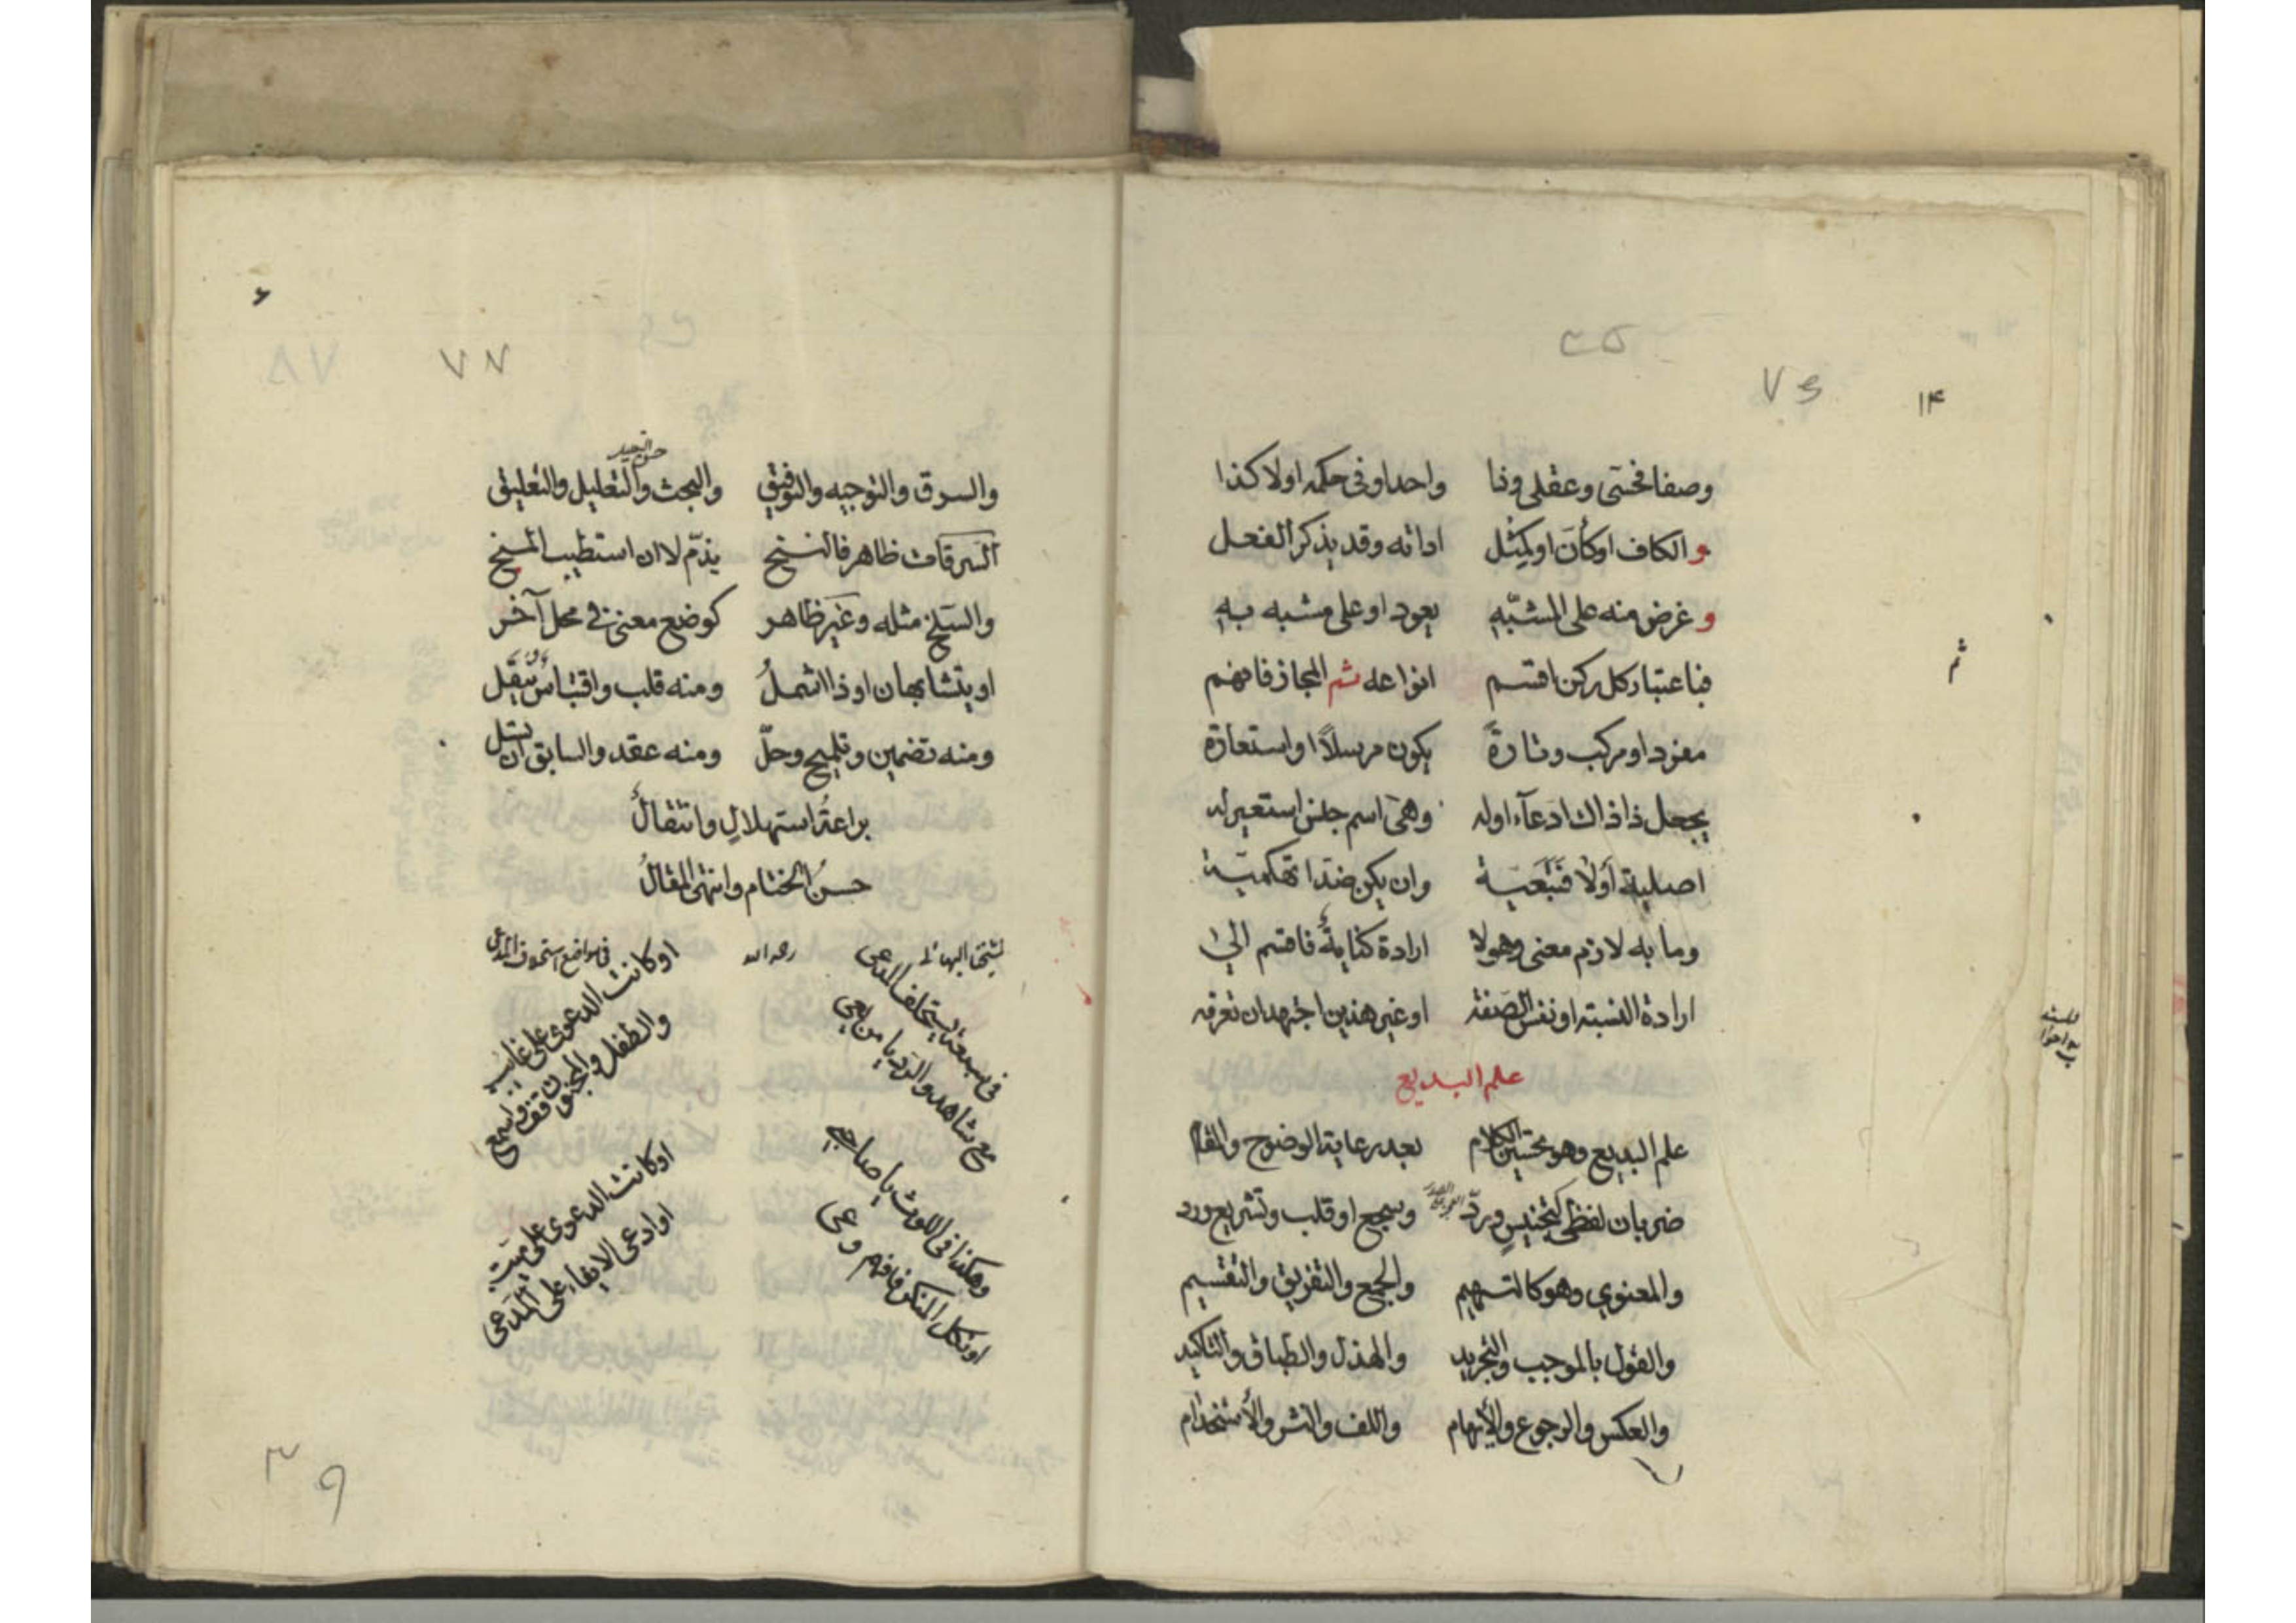 ١٤
وصفا فحسي وعقلي وذا واحدا وفي حكمه اولا كذا
والكاف او كأنّ او كمثل اداته وقد يذكر الفعل
وغرض منه على المشبّهِ يعود او على مشبه بهِ
فباعتبار كل ركن اقتسم انواعه ثم المجاز فافهم
مفرد او مركب وتارةً يكون مرسلاً او استعارة
يجعل ذا ذاك ادعآء اوله وهي اسم جلس استعير له
اصلية أولا فتبعية وان يكن ضدا تهكمية
وما به لازم معنى وهو لا ارادة كناية فاقسم الى
ارادة النسبة او نفس الصفة او غير هذين اجتهد ان تعرفه
علم البديع
علم البديع وهو تحسين الكلام بعد رعاية الوضوح والمقا
ضربان لفظي كتجنيسٍ وردّ وسجع او قلب وتشريع ورد
والمعنوي وهو كالتسهيم والجمع والتفريق والتقسيم
والقول بالموجب والتجريد والهزل والطباق والتاكيد
والعكس والرجوع والايهام واللف والنشر والاستخدام
والسوق والتوجيه والتوفيق والبحث والتعليل والتعليق
السرقات ظاهر فالنسخ يذمّ لا ان استطيب المسخ
والسلخ مثله وغير ظاهر كوضع معنى في محل آخر
او يتشابهان او ذا اشملُ ومنه قلب واقتباس ينقل
ومنه تضمين وتلميح وحلّ ومنه عقد والسابق ان تسل
براعة استهلالٍ وانتقالُ
حسنُ الختام وانتهى المقالُ
لشيخنا البهائي رحمه الله في مواضع استحلاف المدعي
في سبعة يستحلف المدعي
مع شاهد والرد يا من يعي
او كانت الدعوى على غائب
والطفل والمجنون قف واسمع
وهكذا في اللوث يا صاحبي
او نكل المنكر فافهم وعي
او كانت الدعوى على ميت
او ادعى الايفاء على المدعي